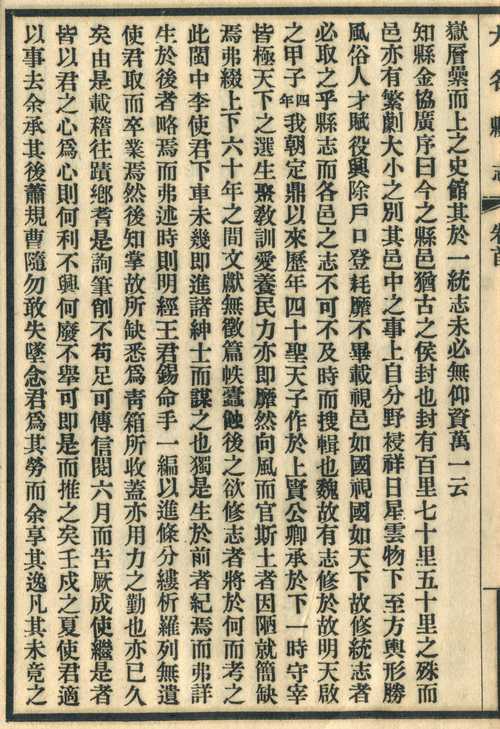 大名縣志
卷首
嶽曆彙而上之史館其於一統志未必無仰資萬一云
知縣金協廣序曰今之縣邑猶古之侯封也封有百里七十里五十里之殊而
邑亦有繁劇大小之別其邑中之事上自分野祲祥日星雲物下至方輿形勝
風俗人才賦役興除戶口登耗靡不畢載視邑如國視國如天下故修統志者
必取之乎縣志而各邑之志不可不及時而搜輯也魏故有志修於故明天啟
之甲子四年我朝定鼎以來歷年四十聖天子作於上賢公卿承於下一時守宰
皆極天下之選生聚教訓愛養民力亦即靡然向風而官斯土者因陋就簡缺
焉弗綴上下六十年之間文獻無徵篇帙蠹蝕後之欲修志者將於何而考之
此閩中李使君下車未幾即進諸紳士而謀之也獨是生於前者紀焉而弗詳
生於後者略焉而弗述時則明經王君錫命手一編以進條分縷析羅列無遺
使君取而卒業焉然後知掌故所缺悉為青箱所收蓋亦用力之勤也亦已久
矣由是載稽往蹟鄉耆是詢筆削不苟足可傳信閱六月而告厥成使繼是者
皆以君之心為心則何利不興何廢不舉可即是而推之矣壬戌之夏使君適
以事去余承其後蕭規曹隨勿敢失墜念君為其勞而余享其逸凡其未竟之